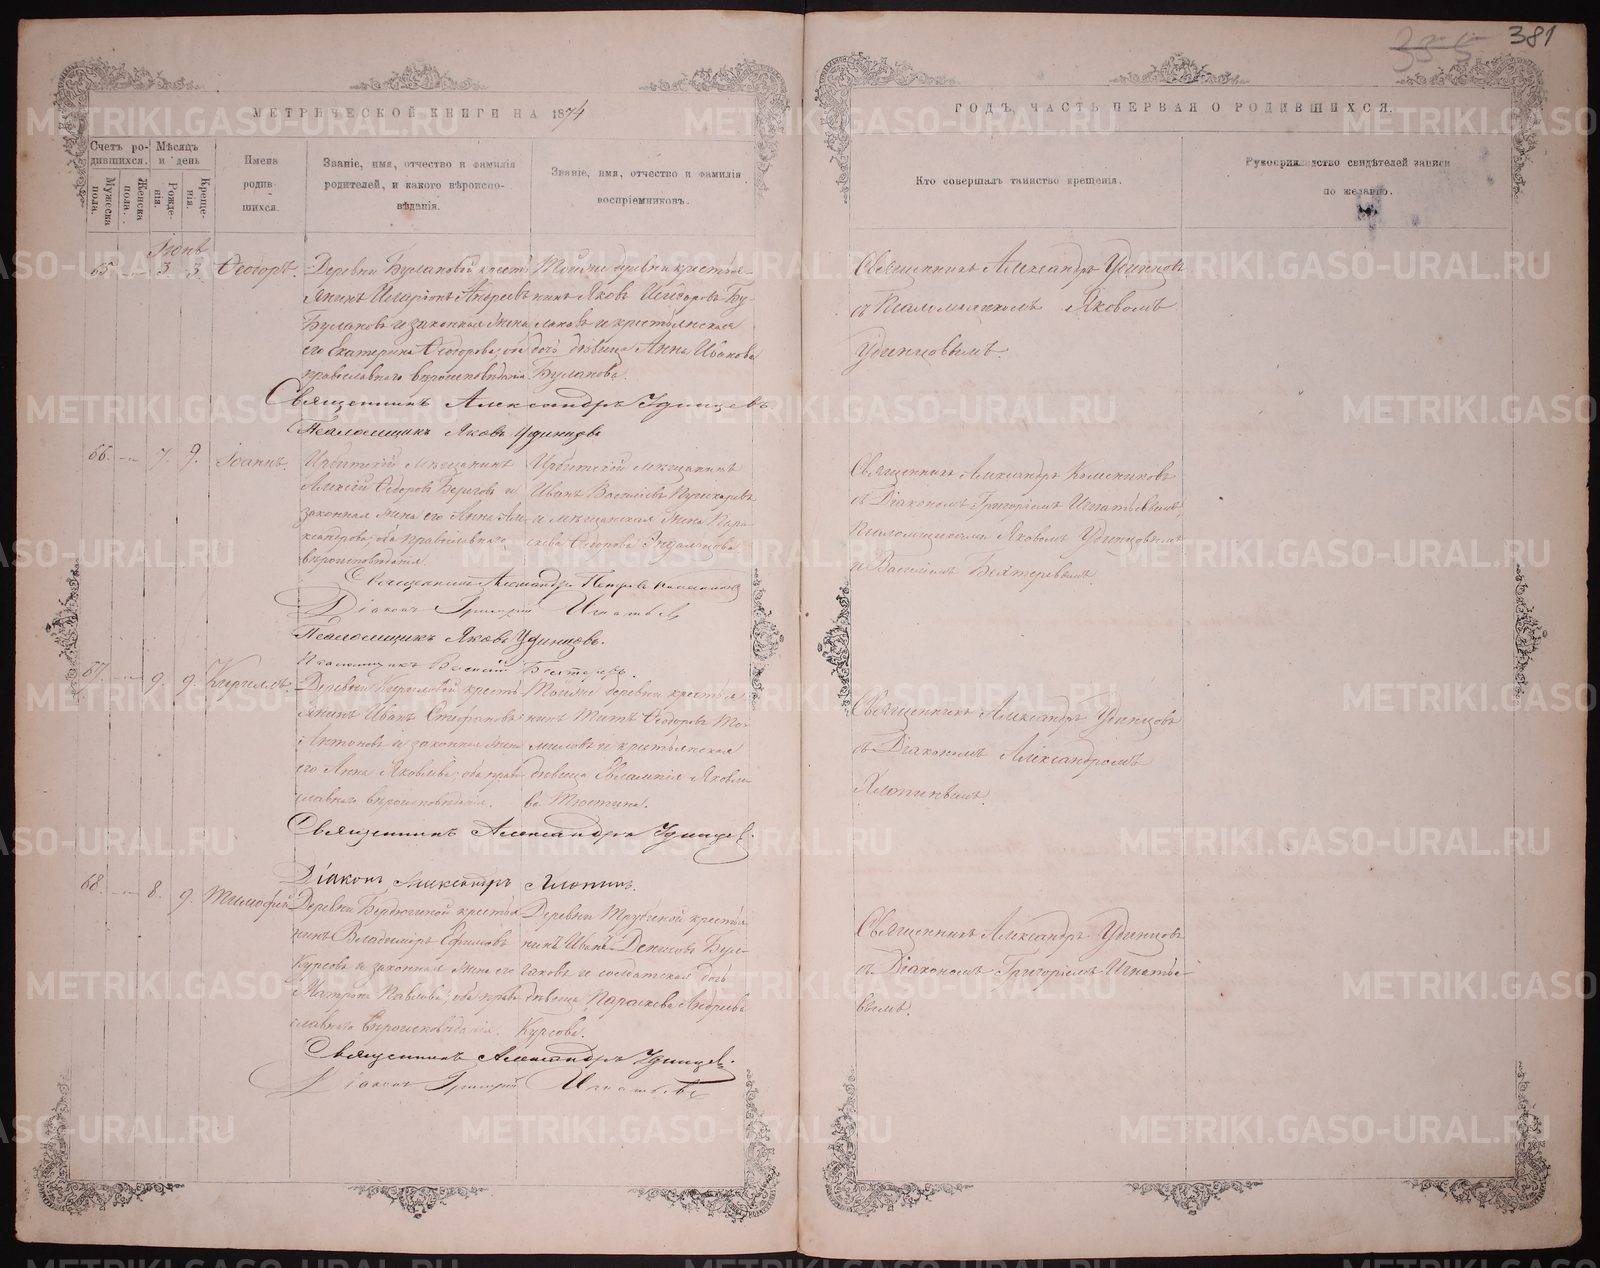 381
МЕТРИЧЕСКОЙ КНИГИ НА 1874
ГОДЪ, ЧАСТЬ ПЕРВАЯ О РОДИВШИХСЯ.
Счетъ родившихся.
Мужеска пола.
Женска пола.
Мѣсяцъ и день
Рожденія.
Крещенія.
Имена родившихся.
Званіе, имя, отчество и фамилія родителей, и какого вѣроисповѣданія.
Званіе, имя, отчество и фамилія воспріемниковъ.
Кто совершалъ таинство крещенія.
Рукоприкладство свидѣтелей записи по желанію.
65 3 3 Ѳеодоръ.
Деревни Булановой кресть
янинъ Иларіонъ Андреевъ
Булановъ и законная жена
его Екатерина Ѳеодорова, оба
православнаго вѣроисповѣданія
Тойже деревни крестья-
нинъ Яковъ Исидоровъ Бу-
лановъ и крестьянская
дочь дѣвица Анна Иванова
Буланова.
Священникъ Александръ Удинцовъ
съ Псаломщикомъ Яковомъ
Удинцовымъ.
Священникъ Александръ Удинцевъ
Псаломщикъ Яковъ Удинцовъ
66. 7. 9. Іоаннъ.
Ирбитскій мѣщанинъ
Алексій Ѳедоровъ Береговъ и
законная жена его Анна Але-
ксандрова, оба православнаго
вѣроисповѣданія.
Ирбитскій мѣщанинъ
Иванъ Васильевъ
и мѣщанская жена Пара-
скева Ѳедорова
Священникъ Александръ
съ Діакономъ Григоріемъ Игнатьевымъ,
Псаломщиками Яковомъ Удинцовымъ
и Василіемъ Бехтеревымъ.
Священникъ Александръ Петровъ
Діаконъ Григорій Игнатьевъ
Псаломщикъ Яковъ Удинцовъ.
Псаломщикъ Василій Бехтеревъ.
67. 9. 9. Кириллъ.
Деревни Кириловой кресть
янинъ Иванъ Стефановъ
Антоновъ и законная жена
его Анна Яковлева, оба право
славнаго вѣроисповѣданія.
Тойже деревни крестья
нинъ Титъ Ѳеодоровъ То-
миловъ и крестьянская
дѣвица Евлампія Яковле
ва Тюстина.
Священникъ Александръ Удинцовъ
съ Діакономъ Александромъ
Хлопинымъ.
Священникъ Александръ Удинцев.
Діаконъ Александръ Хлопинъ.
68. 8. 9. Тимофей
Деревни Бердюгиной крестья
нинъ Владиміръ Ефимовъ
Курсовъ и законная жена его
Матрона Павлова, оба право
славнаго вѣроисповѣданія.
Деревни Трубиной крестья
нинъ Иванъ Денисовъ Бул-
гаковъ и солдатская дочь
дѣвица Параскева Андреева
Курсова.
Священникъ Александръ Удинцовъ
съ Діакономъ Григоріемъ Игнатье-
вымъ.
Священникъ Александръ Удинцев.
Діаконъ Григорій Игнатьевъ
METRIKI.GASO-URAL.RU